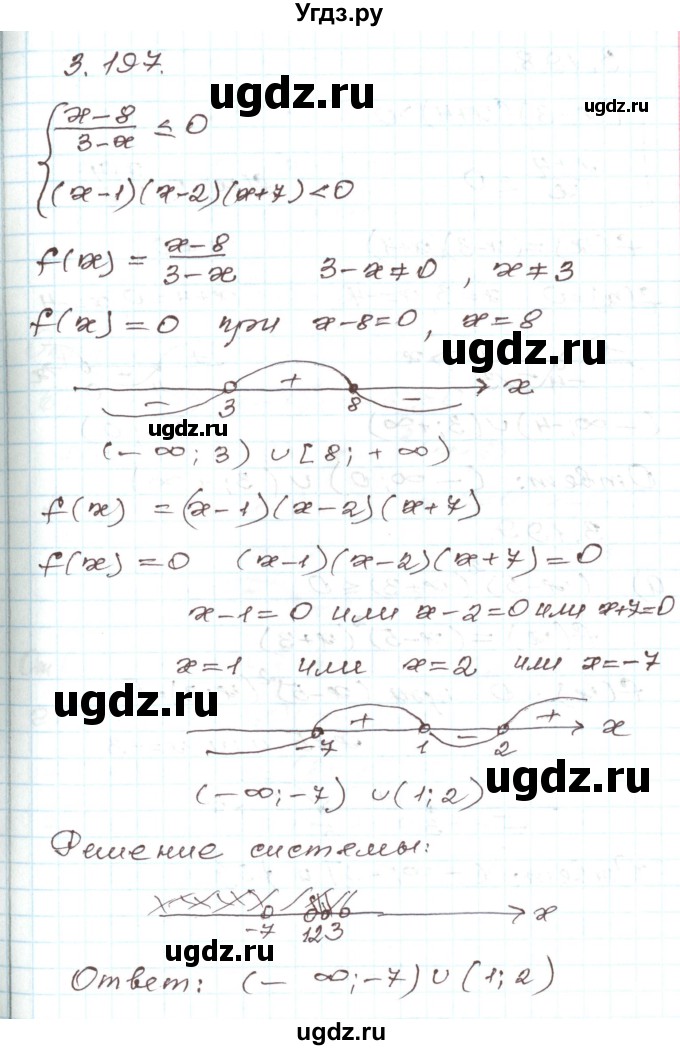 Угдз.ру
3.197.
ugdz.ru
{ (x-8)/(3-x) ≤ 0
ugdz.ru
(x-1)(x-2)(x+7)<0
f(x) = (x-8)/(3-x)   3-x≠0 , x≠3
f(x)=0 при x-8=0, x=8
ugdz.ru
- 3 + 8 - x
ugdz.ru
(-∞; 3) ∪ [8; +∞)
f(x) = (x-1)(x-2)(x+7)
f(x)=0 (x-1)(x-2)(x+7)=0
ugdz.ru
x-1=0 или x-2=0 или x+7=0
x=1 или x=2 или x=-7
ugdz.ru
-7 + 1 - 2 + x
ugdz.ru
(-∞;-7) ∪ (1;2)
Решение системы:
-7 1 2 3 x
ugdz.ru
Ответ: (-∞;-7)∪(1;2)
ugdz.ru